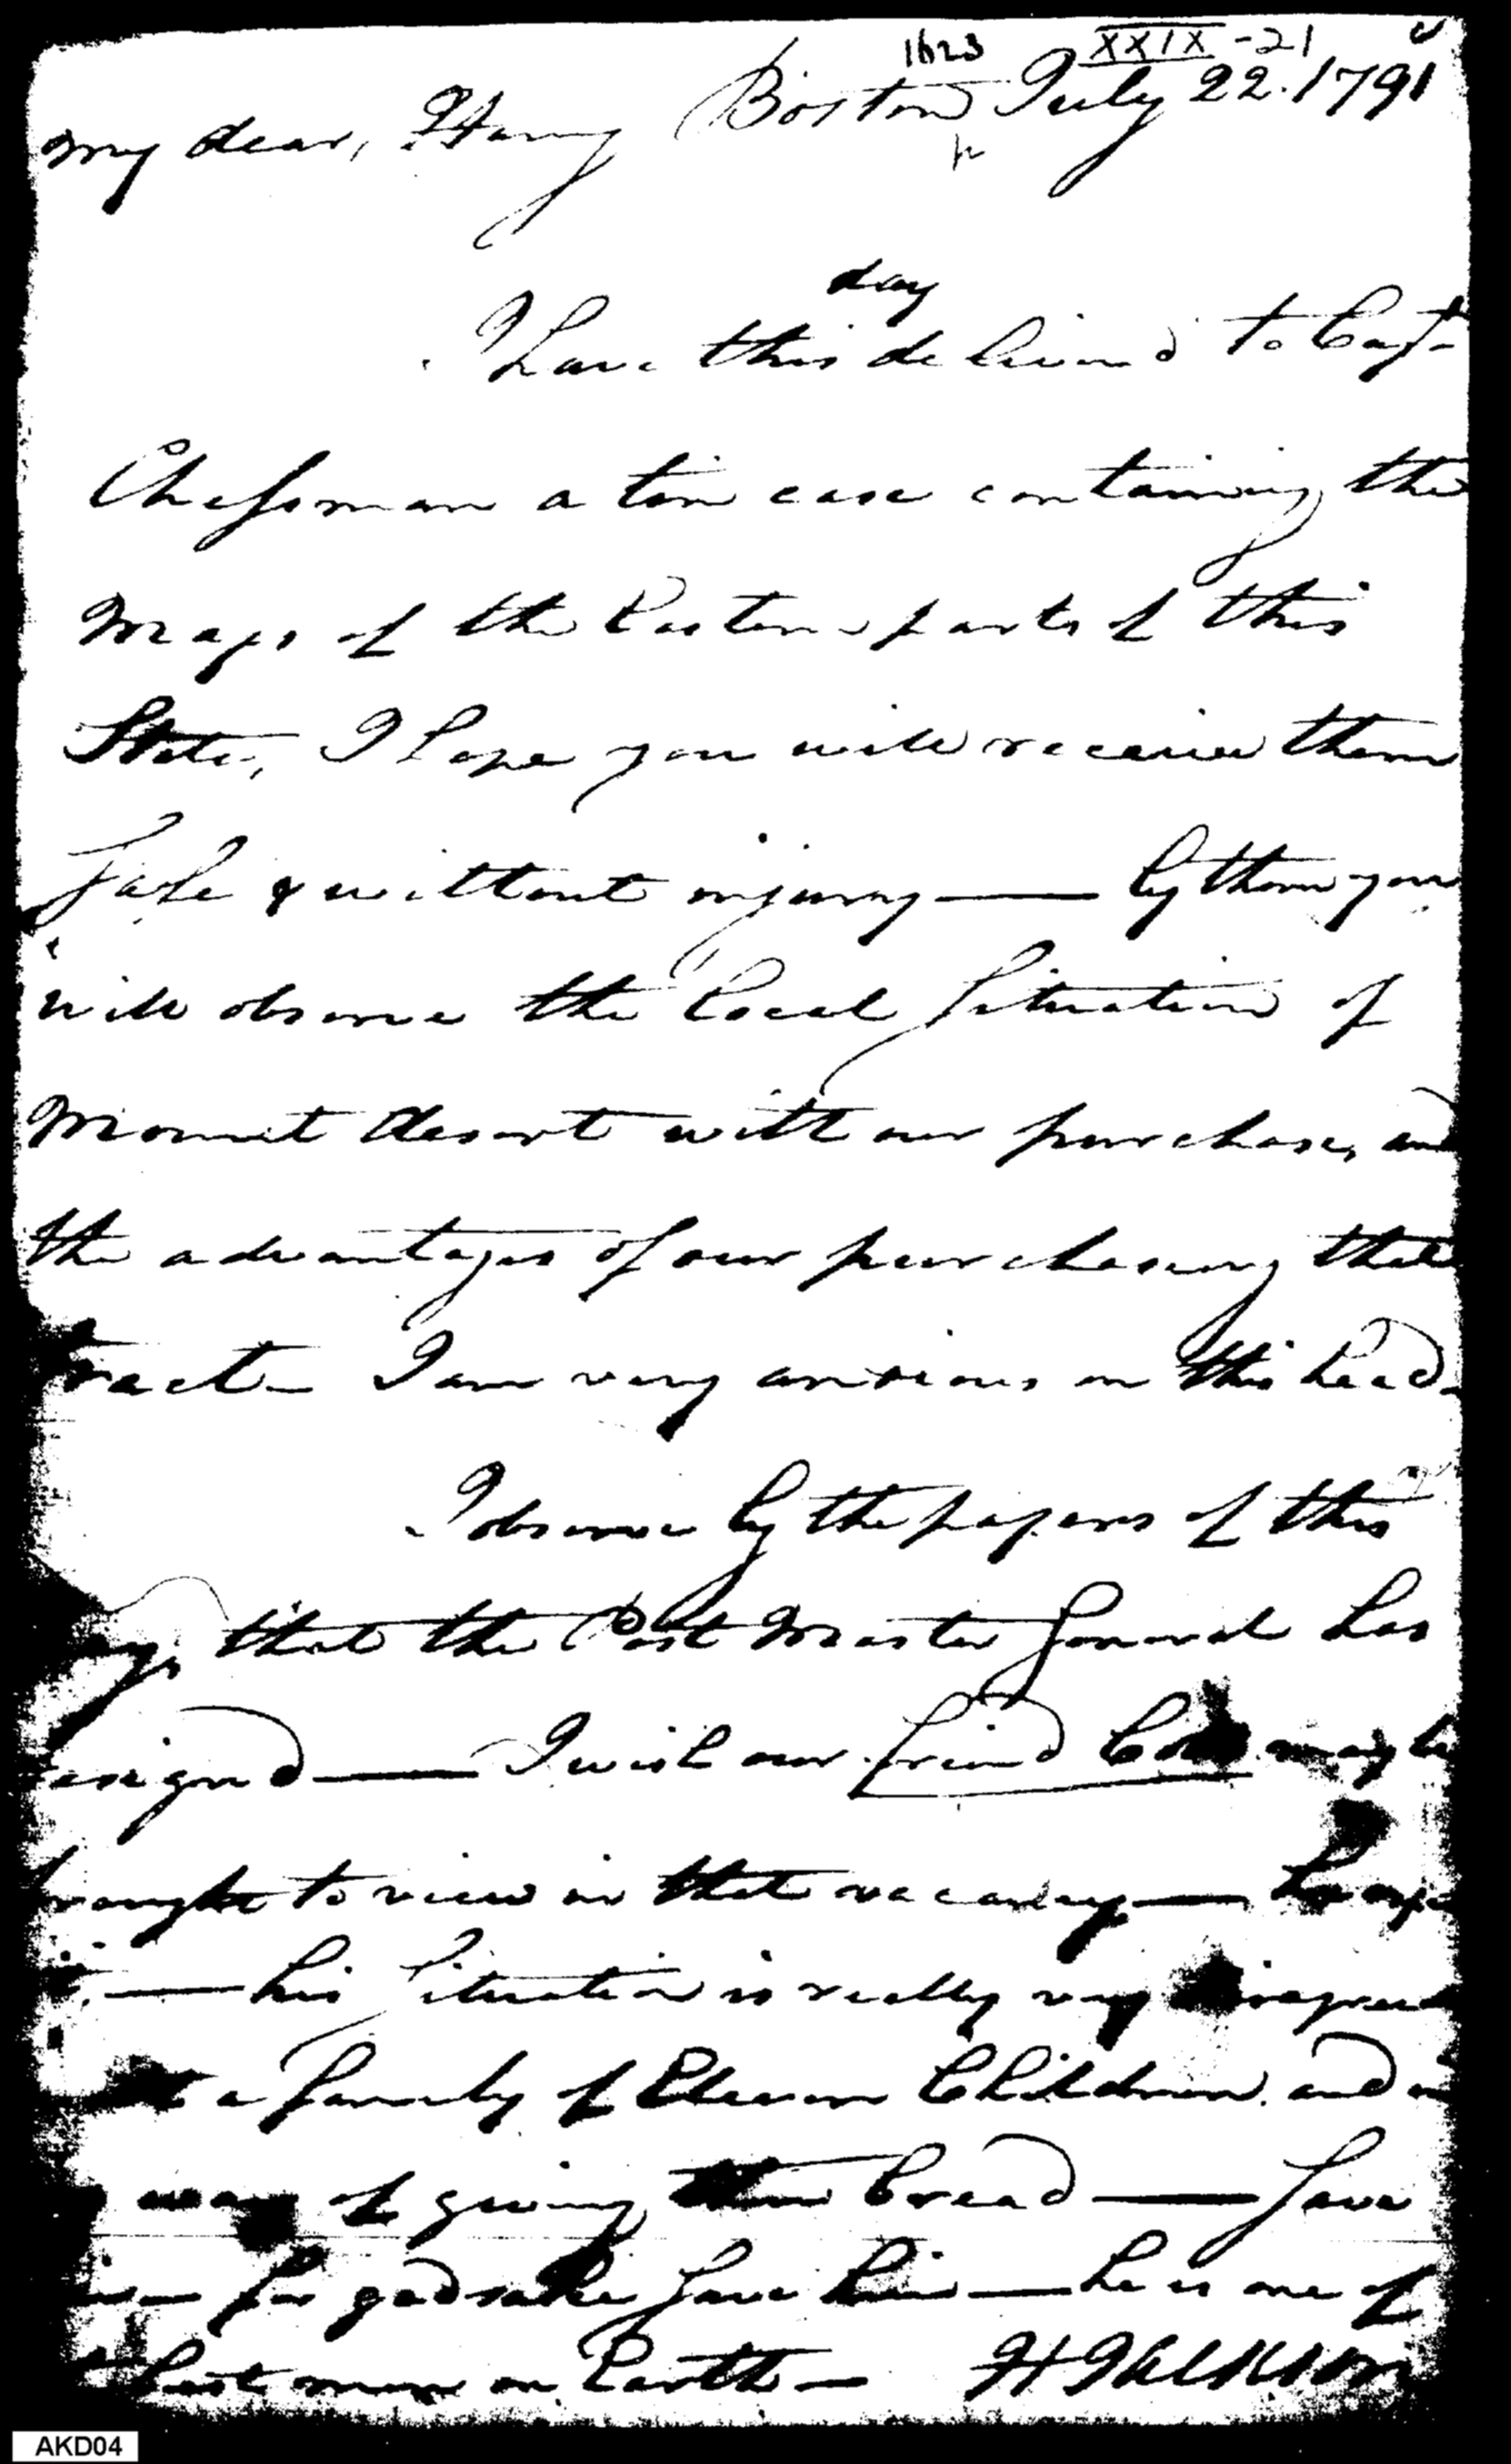 1623 XXIX-21
Boston July 22. 1791
My dear, Harry
day
I have this deliver'd to Capt
Chessman a tin case containing the
Maps of the Eastern parts of this
State, I hope you will receive them
Safe & without injury — by them you
will observe the local Situation of
Mount desert with our purchase, and
the advantages of our purchasing that
tract — I am very anxious on this head.
I observe by the papers of this
that the Post Master General has
esigned — I wish our friend may be
brought to view in that vacancy —
— his Situation is really very
a family of Eleven Children and
way of giving them bread — Save
for god sake Save him — he is one of
best men on Earth — H Jackson
AKD04